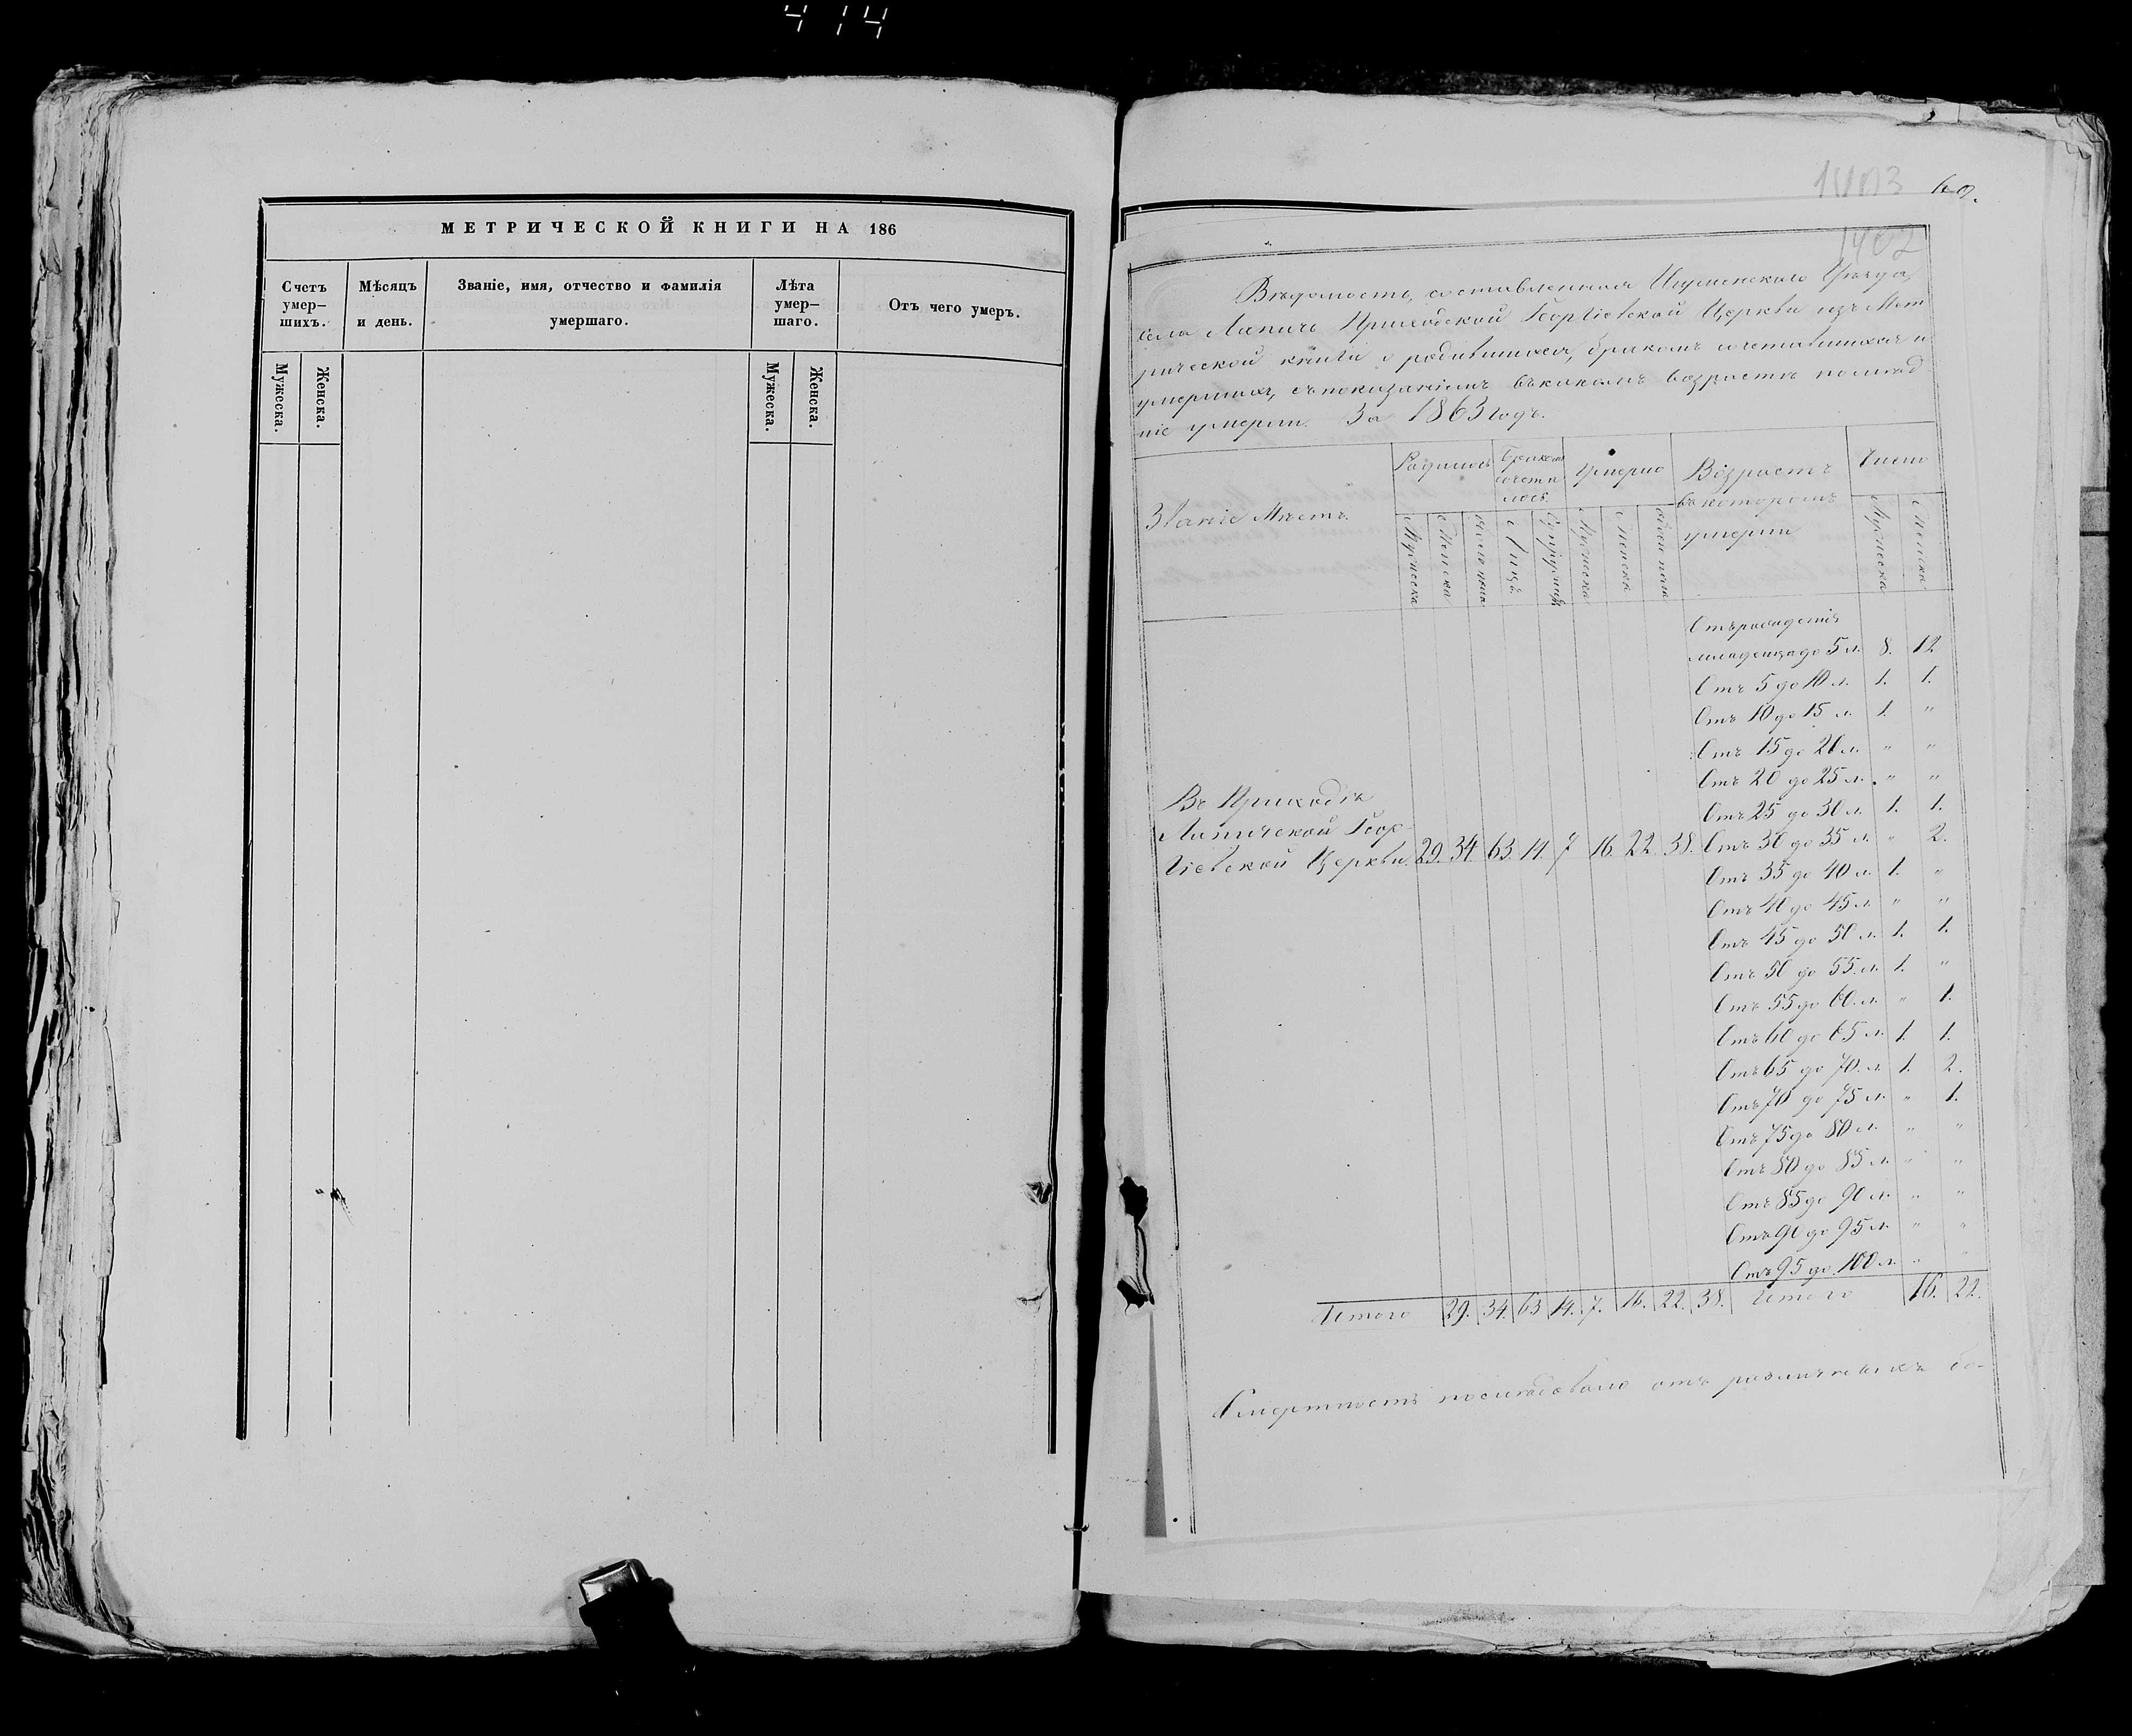 414
МЕТРИЧЕСКОЙ КНИГИ НА 186
Счетъ умер— шихъ.
Мѣсяцъ и день.
Званіе, имя, отчество и фамилія умершаго.
Лѣта умер— шаго.
Отъ чего умеръ.
Мужеска.
Женска.
Мужеска.
Женска.
1403
69.
1402
Вѣдомость, составленная Игуменскаго Уѣзда,
села Лапичъ Приходской Георгіевской Церкви изъ Мет
рической книги о родившихся, бракомъ сочетавшихся и
умершихъ, съ показаніемъ въ какомъ возрастѣ послѣд
ніе умерли. За 1863 годъ.
Званіе Мѣстъ.
Родилось
Бракомъ сочета лось.
Умерло
Возрастъ въ которомъ умерли
Число
Мужеска
Женска
Лицъ
Супружествъ
Мужеска
Женска
Обоего пола
Мужеска
Женска
Отъ рожденія
младенца до 5 л. 8. 12
Отъ 5 до 10 л. 1. 1.
Отъ 10 до 15 л. 1. "
Отъ 15 до 20 л. " "
Отъ 20 до 25 л. " "
Отъ 25 до 30 л. 1. 1.
Отъ 30 до 35 л. " 2.
Отъ 35 до 40 л. 1. "
Отъ 40 до 45 л. " "
Отъ 45 до 50 л. 1. 1.
Отъ 50 до 55. л. 1. "
Отъ 55 до 60. л. " 1.
Отъ 60 до 65 л. 1. 1.
Отъ 65 до 70. л. 1. 2.
Отъ 70 до 75 л. " 1.
Отъ 75 до 80 л. " "
Отъ 80 до 85 л. " "
Отъ 85 до 90 л. " "
Отъ 90 до 95 л. " "
Отъ 95 до 100 л. " "
Въ Приходѣ
Лапичской Геор-
гіевской Церкви. 29. 34. 63. 14. 7 16. 22. 38.
Итого 29. 34. 63 14. 7. 16. 22. 38. Итого 16. 22.
Смертность послѣдовала отъ различныхъ бо-